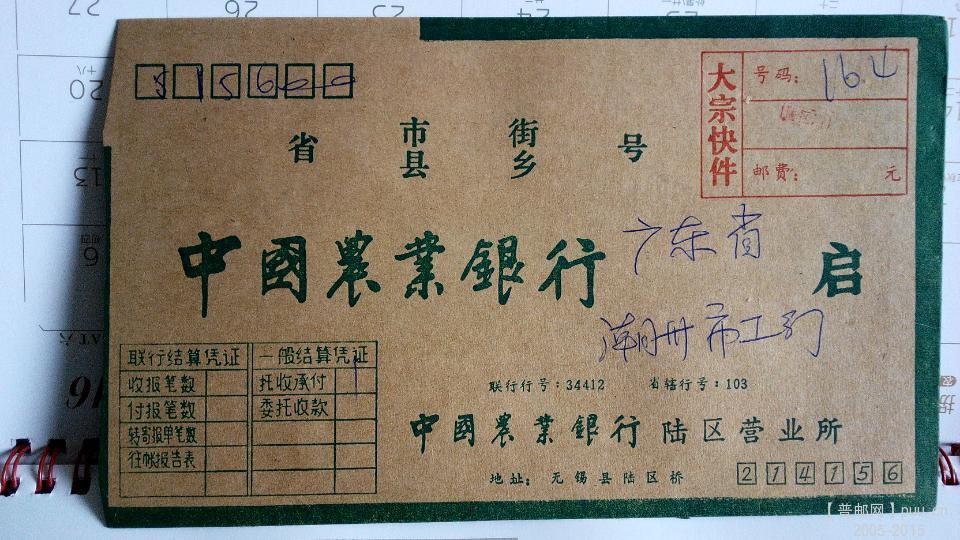 515600
大宗快件
号码: 164
邮费: 元
省 市县 街乡 号
中國農業銀行 广东省 启
潮州市工行
联行结算凭证 一般结算凭证
收报笔数 托收承付 1
付报笔数 委托收款
转寄报单笔数
往帐报告表
联行行号:34412 省辖行号:103
中國農業銀行陆区营业所
地址: 无锡县陆区桥 214156
【普邮网】puu.cn
2005-2015
27 26 25 24 23
20 十八
13
6 周四
SAT 六